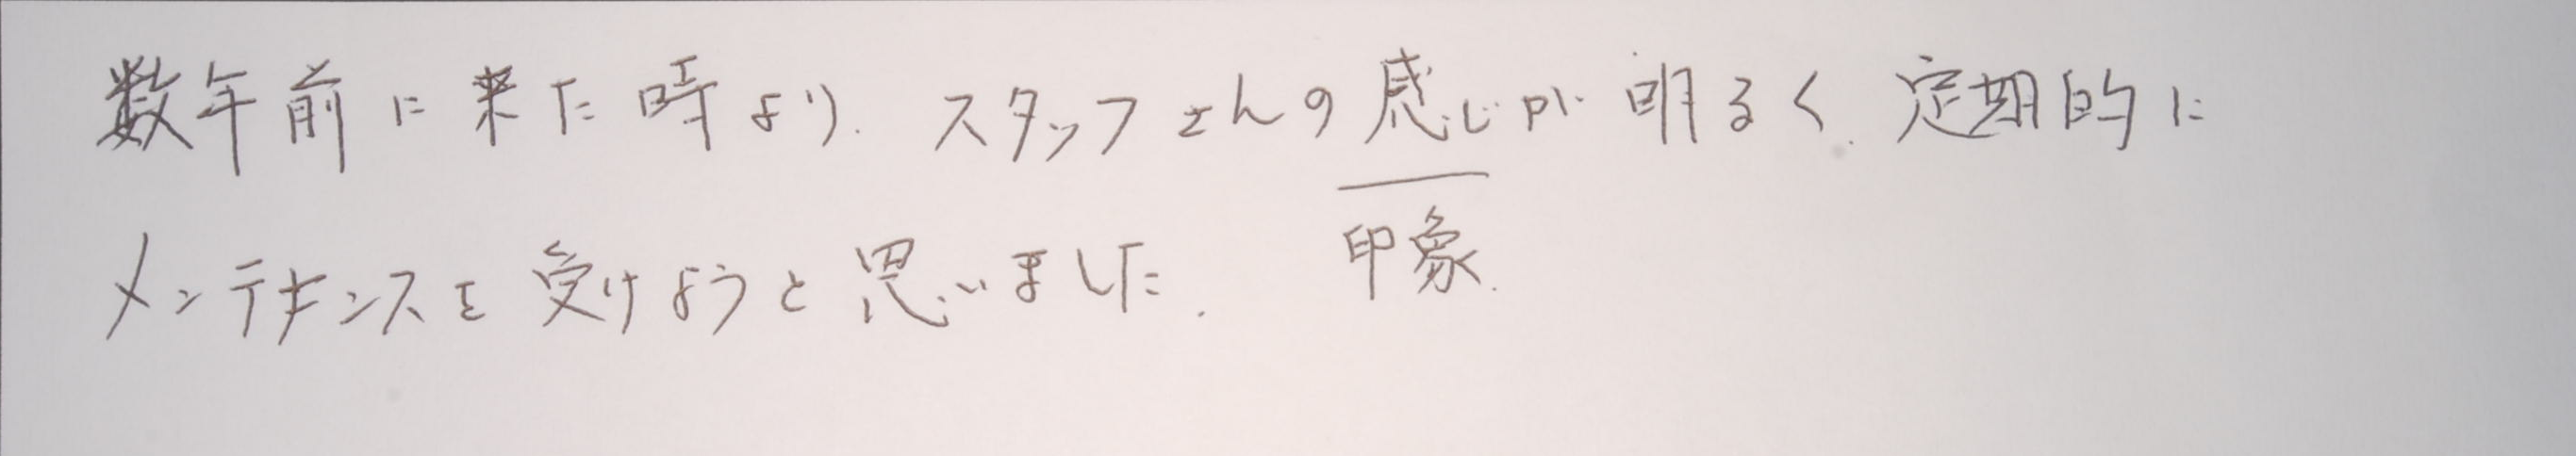 数年前に来た時より、スタッフさんの感じが明るく、定期的に
メンテナンスを受けようと思いました。
印象